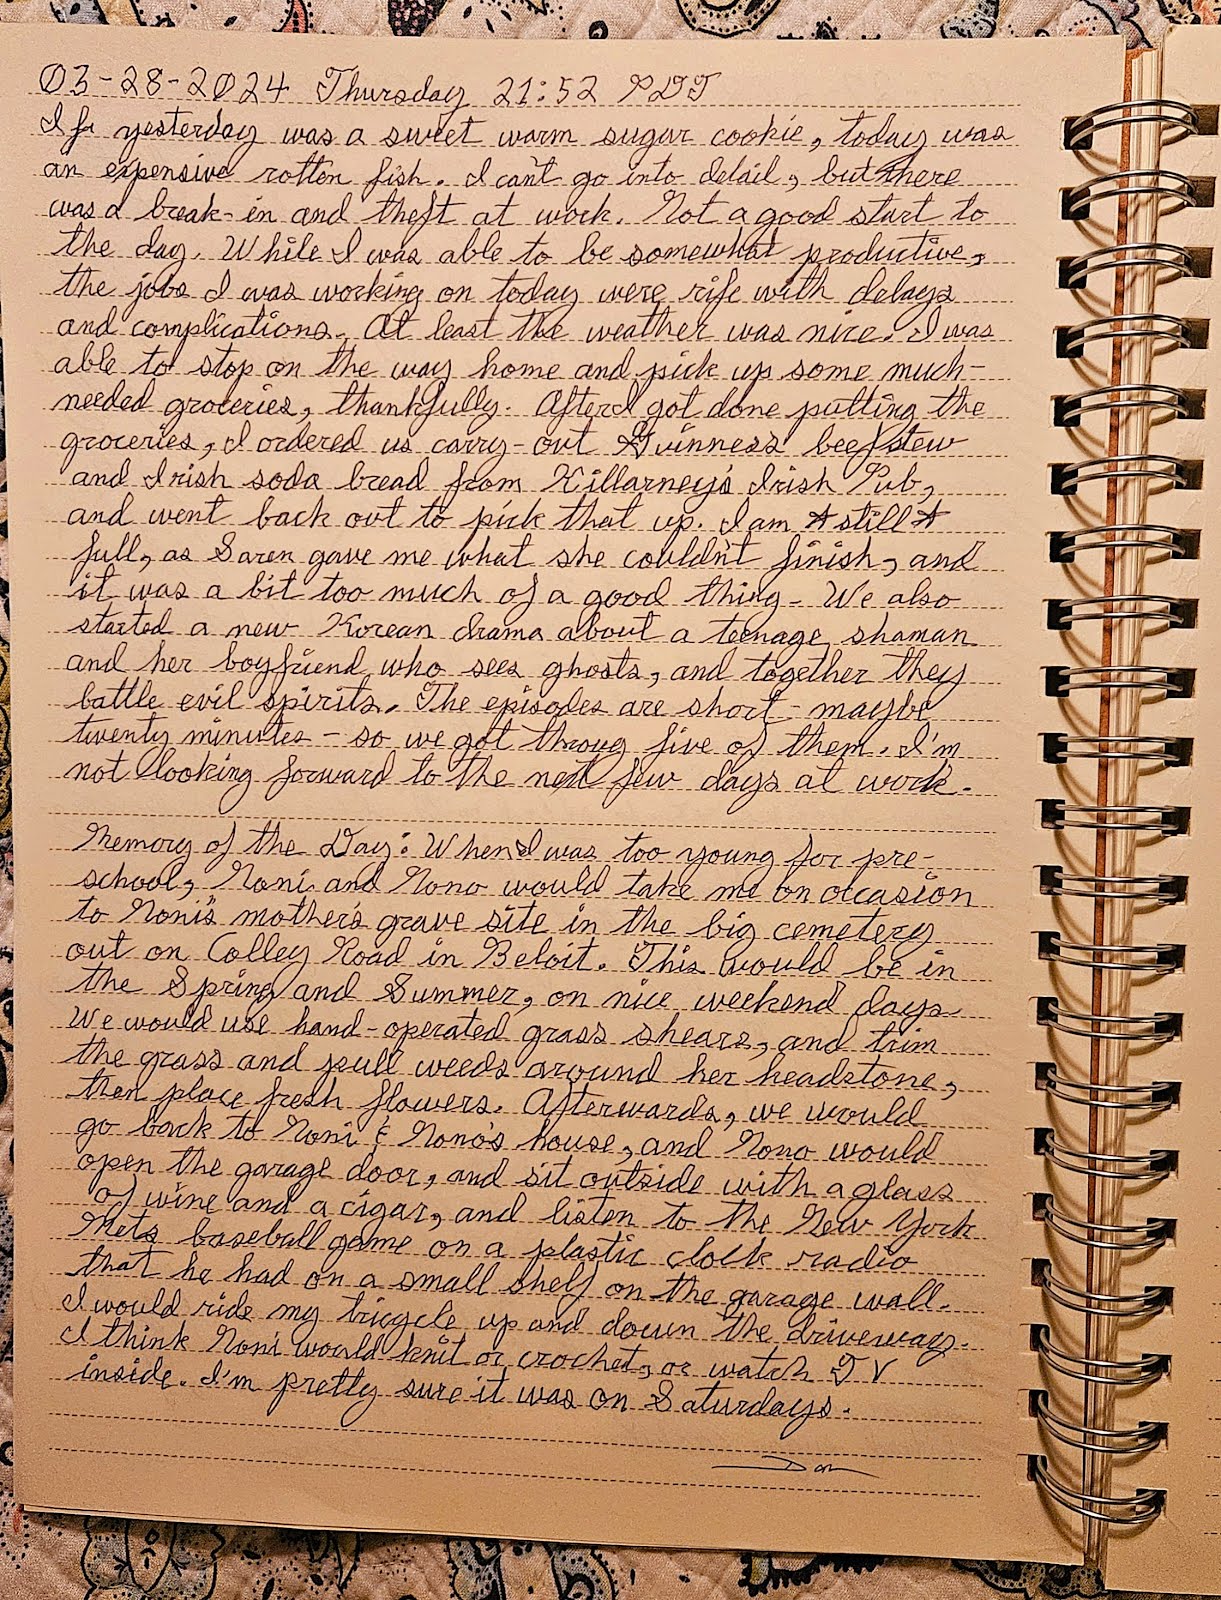 03-28-2024 Thursday 21:52 PDT
If yesterday was a sweet warm sugar cookie, today was
an expensive rotten fish. I can't go into detail, but there
was a break-in and theft at work. Not a good start to
the day. While I was able to be somewhat productive,
the jobs I was working on today were rife with delays
and complications. At least the weather was nice. I was
able to stop on the way home and pick up some much-
needed groceries, thankfully. After I got done putting the
groceries, I ordered us carry-out Guinness beef stew
and Irish soda bread from Killarney's Irish Pub,
and went back out to pick that up. I am *still*
full, as Saren gave me what she couldn't finish, and
it was a bit too much of a good thing. We also
started a new Korean drama about a teenage shaman
and her boyfriend who sees ghosts, and together they
battle evil spirits. The episodes are short - maybe
twenty minutes - so we got throug five of them. I'm
not looking forward to the next few days at work.
Memory of the Day: When I was too young for pre-
school, Noni and Nono would take me on occasion
to Noni's mother's grave site in the big cemetery
out on Colley Road in Beloit. This would be in
the Spring and Summer, on nice weekend days.
We would use hand-operated grass shears, and trim
the grass and pull weeds around her headstone,
then place fresh flowers. Afterwards, we would
go back to Noni & Nono's house, and Nono would
open the garage door, and sit outside with a glass
of wine and a cigar, and listen to the New York
Mets baseball game on a plastic clock radio
that he had on a small shelf on the garage wall.
I would ride my tricycle up and down the driveway.
I think Noni would knit or crochet, or watch TV
inside. I'm pretty sure it was on Saturdays.
Dan